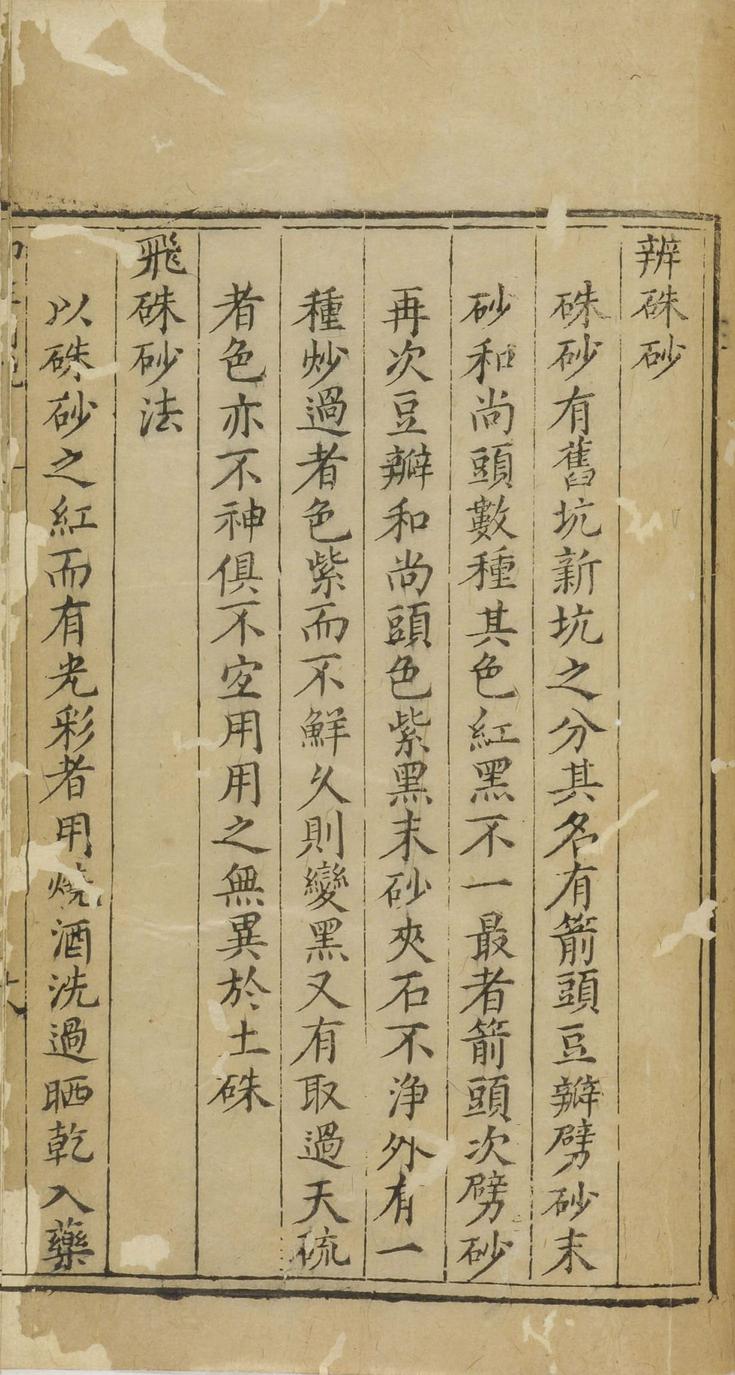 辨硃砂
硃砂有舊坑新坑之分其名有箭頭豆瓣劈砂末
砂和尚頭數種其色紅黑不一最者箭頭次劈砂
再次豆瓣和尚頭色紫黑末砂夾石不浄外有一
種炒過者色紫而不鮮久則變黑又有取過天硫
者色亦不神俱不宜用用之無異於土硃
飛硃砂法
以硃砂之紅而有光彩者用燒酒洗過晒乾入藥